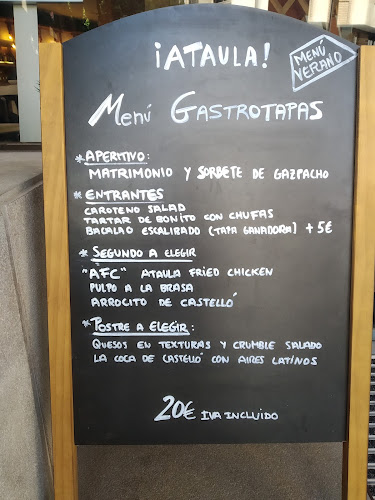 ¡ATAULA!
MENÚ
VERANO
Menú GASTROTAPAS
* APERITIVO:
MATRIMONIO Y SORBETE DE GAZPACHO
* ENTRANTES
CAROTENO SALAD
TARTAR DE BONITO CON CHUFAS
BACALAO ESCALIBADO (TAPA GANADORA) + 5€
* SEGUNDO A ELEGIR
"AFC" ATAULA FRIED CHICKEN
PULPO A LA BRASA
ARROCITO DE CASTELLÓ
* POSTRE A ELEGIR:
QUESOS EN TEXTURAS Y CRUMBLE SALADO
LA COCA DE CASTELLÓ CON AIRES LATINOS
20€ IVA INCLUIDO